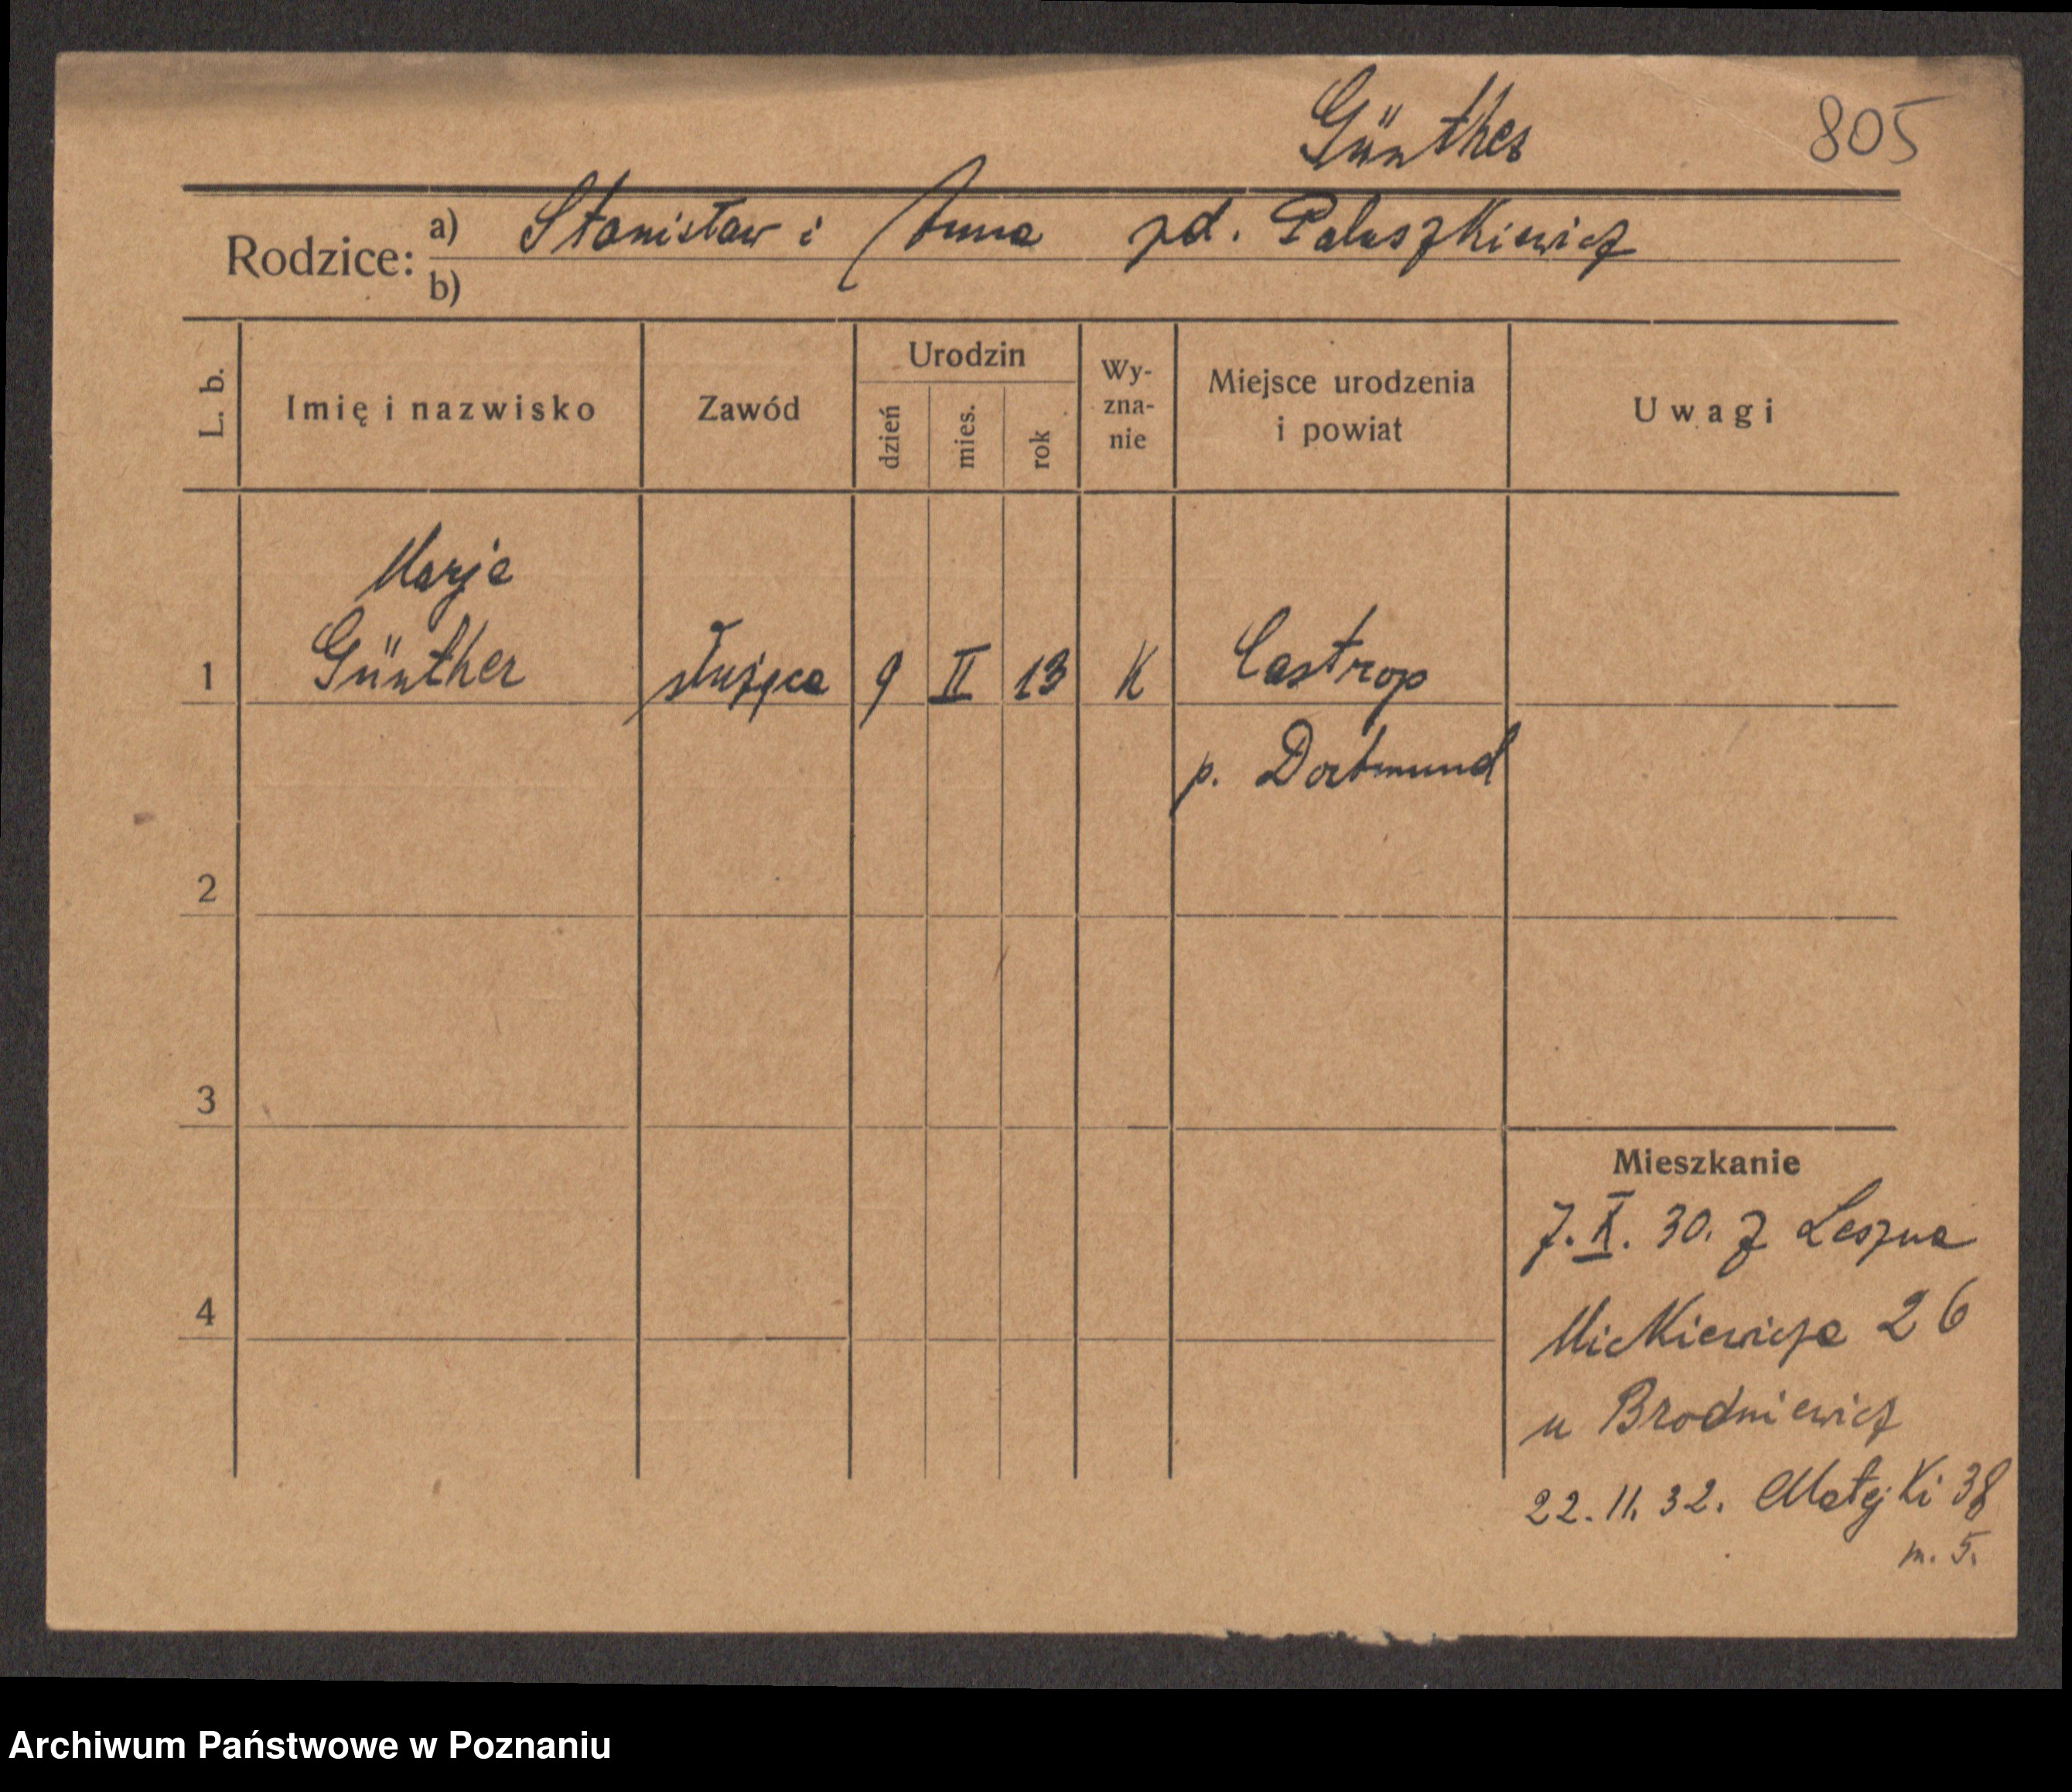 Günther
805
Rodzice: a) Stanisław i Anna zd. Paluszkiewicz
b)
L. b. Imię i nazwisko Zawód Urodzin dzień mies. rok Wy-zna-nie Miejsce urodzenia i powiat Uwagi
Marja
1 Günther służąca 9 II 13 K Castrop
p. Dortmund
2
3
Mieszkanie
7. X. 30. z Leszna
4
Mickiewicza 26
u Brodniewicz
22. 11. 32. Matejki 38
m. 5.
Archiwum Państwowe w Poznaniu